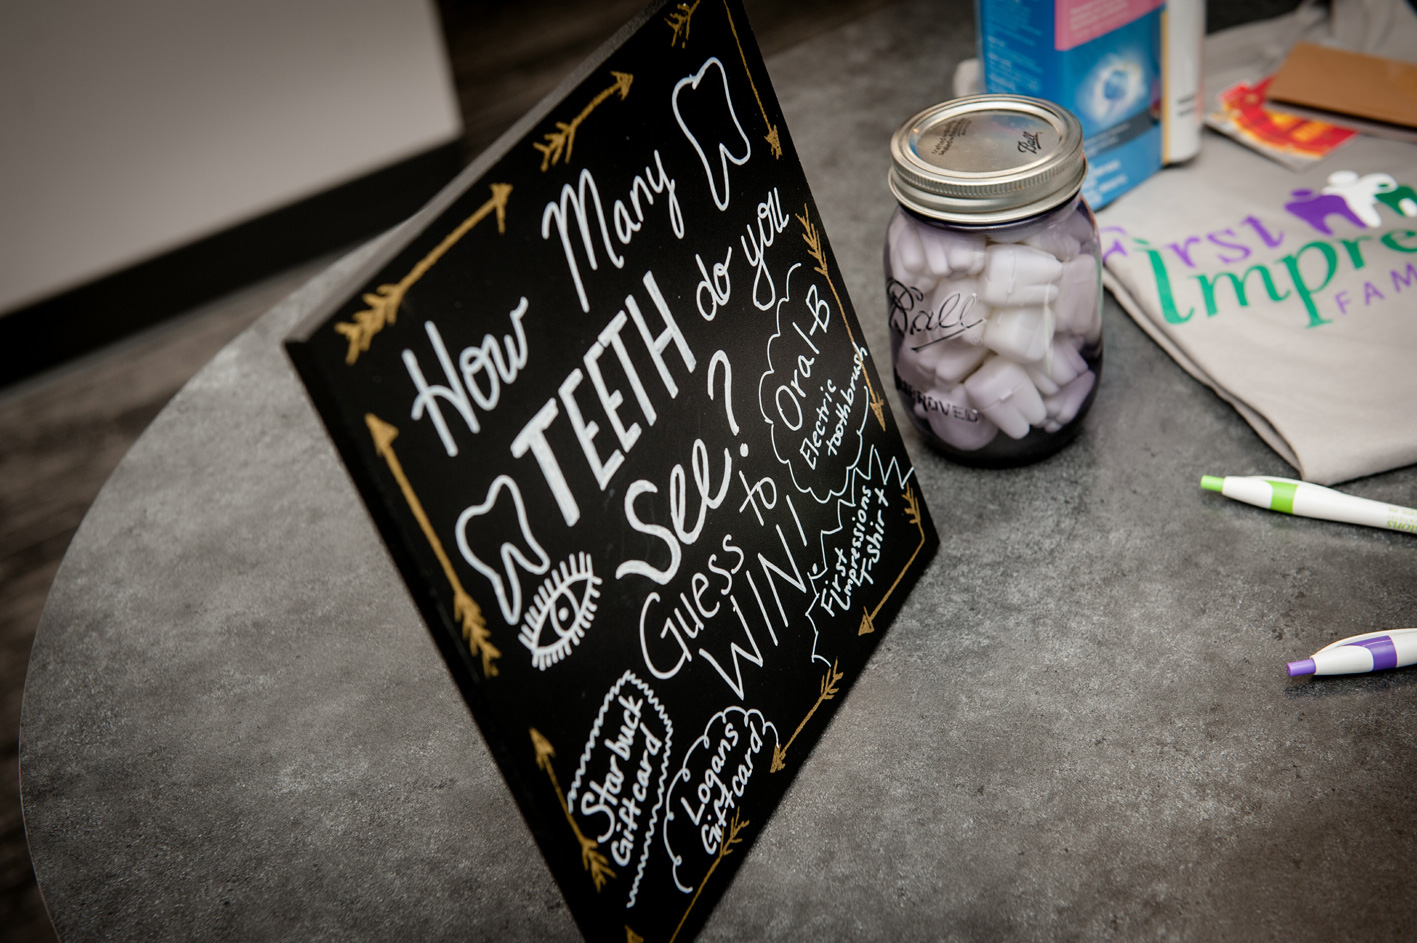 How Many
TEETH do you
See?
Guess to
WIN!
Oral-B
Electric
toothbrush
First
Impressions
T-shirt
Starbuck
Giftcard
Logans
Giftcard
Ball
Ball
First
Impre
FAM